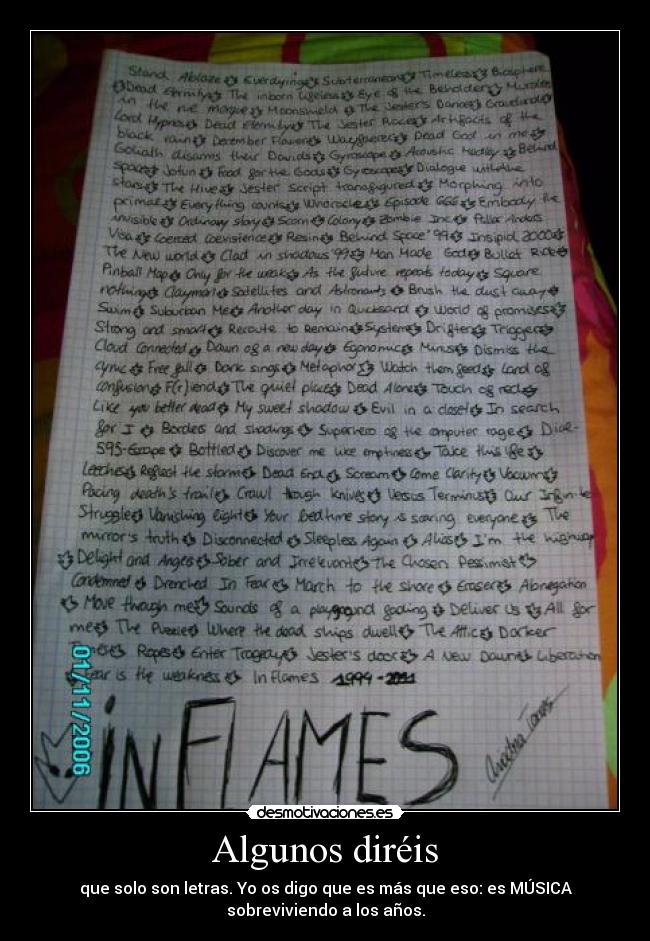 Stand Ablaze Everdying Subterranean Timeless Biosphere
Dead Eternity The inborn lifeless Eye of the Beholder Murders
in the rue morgue Moonshield The Jester's Dance Graveland
Lord Hypnos Dead Eternity The Jester Race Artifacts of the
black rain December Flower Wayfaerer Dead God in me
Goliath disarms their Davids Gyroscope Acoustic Medley Behind
space Jotun Food for the Gods Gyroscope Dialogue with the
stars The Hive Jester Script transfigured Morphing into
primal Everything counts Episode 666 Embody the
invisible Ordinary story Scorn Colony Zombie Inc Pallar Anders
Visa Coerced Coexistence Resin Behind Space '99 Insipid 2000
The New world Clad in shadows '99 Man Made God Bullet Ride
Pinball Map Only for the weak As the future repeats today Square
nothing Clayman Satellites and Astronauts Brush the dust away
Swim Suburban Me Another day in Quicksand World of promises
Strong and smart Reroute to Remain System Drifter Trigger
Cloud Connected Dawn of a new day Egonomic Minus Dismiss the
cynic Free fall Dark signs Metaphor Watch them feed Land of
confusion F(r)iend The quiet place Dead Alone Touch of red
Like you better dead My sweet shadow Evil in a closet In search
for I Borders and shadings Superhero of the computer rage Dial-
595-Escape Bottled Discover me like emptiness Take this life
Leeches Reflect the storm Dead End Scream Come Clarity Vacuum
Pacing death's trail Crawl through knives Versus Terminus Our Infinite
Struggle Vanishing light Your bedtime story is scaring everyone The
mirror's truth Disconnected Sleepless Again Alias I'm the highway
Delight and Angers Sober and Irrelevant The Chosen Pessimist
Condemned Drenched In Fear March to the shore Eraser Abnegation
Move through me Sounds of a playground fading Deliver Us All for
me The Puzzle Where the dead ships dwell The Attic Darker
Times Ropes Enter Tragedy Jester's door A New Dawn Liberation
Fear is the weakness In Flames 1994-2011
iN FLAMES
01/11/2006
desmotivaciones.es
Algunos diréis
que solo son letras. Yo os digo que es más que eso: es MÚSICA
sobreviviendo a los años.